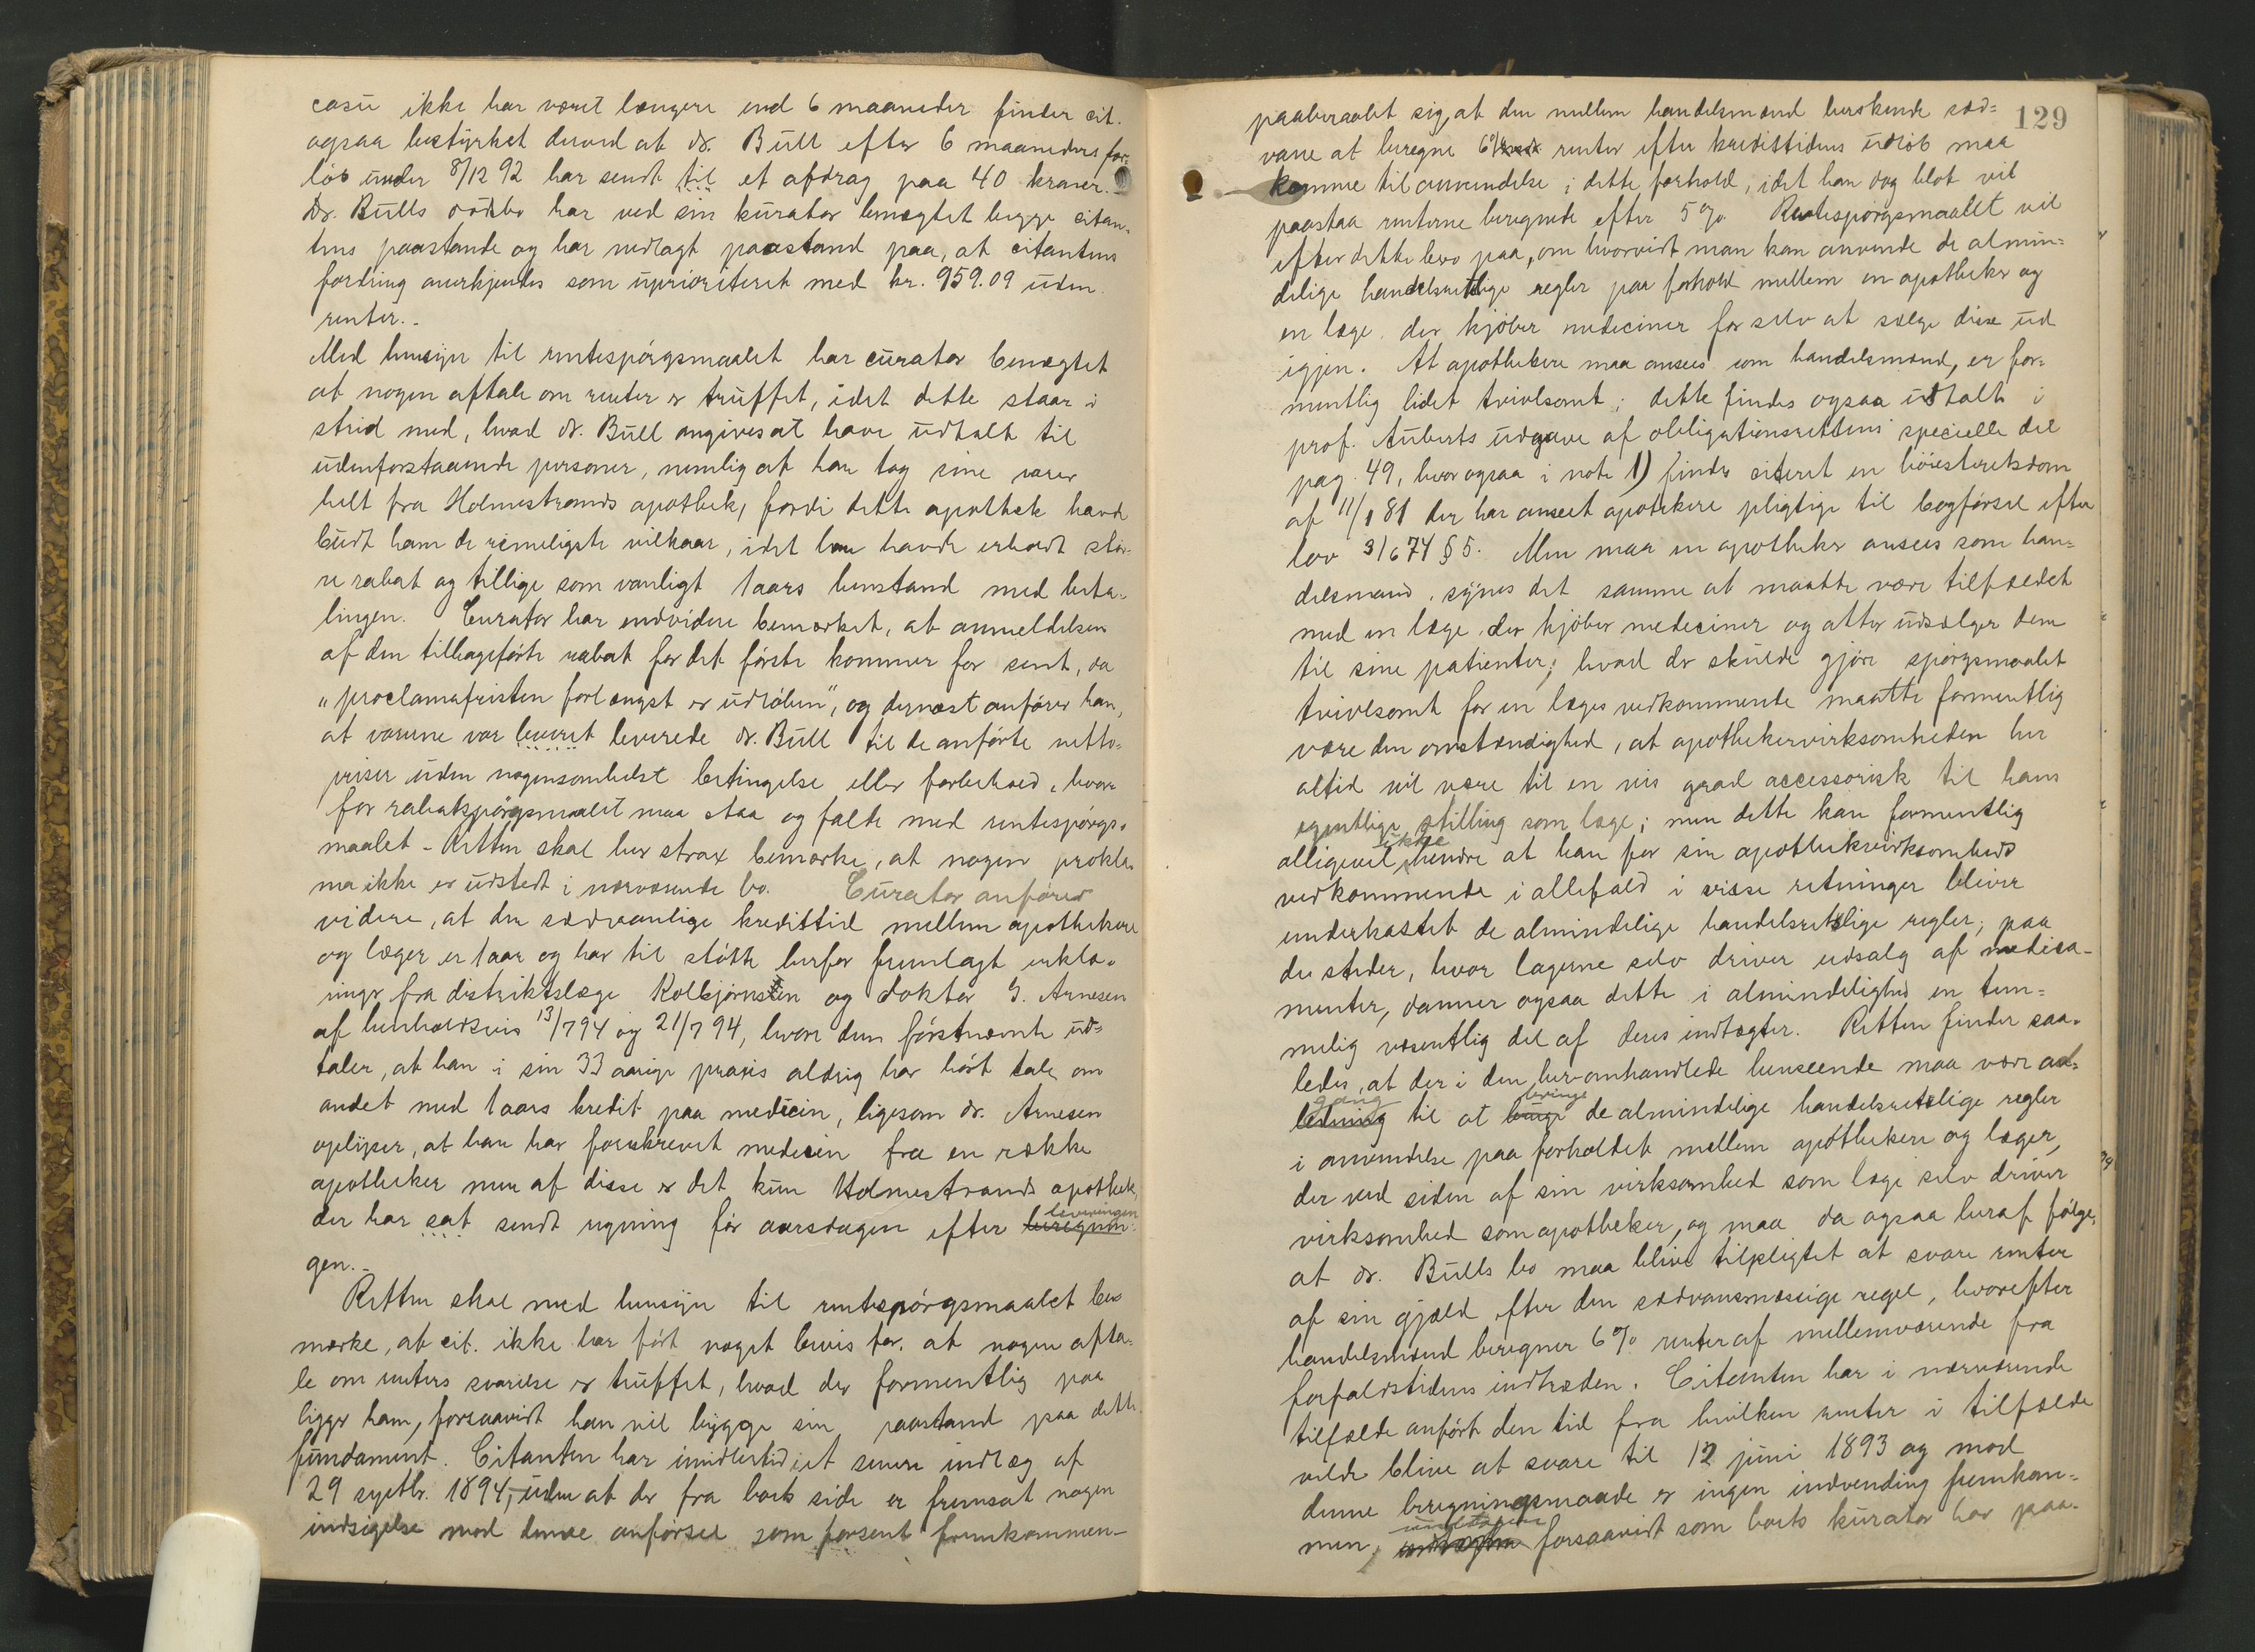 casu ikke har været længere end 6 maaneder finder cit.
ogsaa bestyrket derved at dr. Bull efter 6 maaneders for-
løb under 8/12 92 har sendt til et afdrag paa 40 kroner.
Dr. Bulls dødsbo har ved sin kurator benægtet begge citan-
tens paastande og har nedlagt paastand paa, at citantens
fordring anerkjendes som uprioriteret med kr. 959.09 uden
renter.-
Med hensyn til rentespørgsmaalet har curator benægtet
at nogen aftale om renter er truffet, idet dette staar i
strid med, hvad dr. Bull angives at have udtalt til
udenforstaaende personer, nemlig at han tog sine varer
helt fra Holmestrands apothek, fordi dette apothek havde
budt ham de rimeligste vilkaar, idet han havde erholdt stør-
re rabat og tillige som vanligt 1 aars henstand med beta-
lingen. Curator har endvidere bemærket, at anmeldelsen
af den tilbageførte rabat for det første kommer for sent, da
"proclamafristen forlængst er udløben", og dernæst anfører han,
at varerne var leveret leverede dr. Bull til de anførte netto-
priser uden nogensomhelst betingelse eller forbehold, hvor-
for rabatspørgsmaalet maa staa og falde med rentespørgs-
maalet - Retten skal her strax bemærke, at nogen prokla-
ma ikke er udstedt i nærværende bo. Curator anfører
videre, at den sædvanlige kredittid mellem apothekere
og læger er 1 aar og har til støtte herfor fremlagt erklæ-
ringer fra distriktslæge Kolbjørnsen og doktor G. Arnesen
af henholdsvis 13/7 94 og 21/7 94, hvori den førstnævnte ud-
taler, at han i sin 33 aarige praxis aldrig har hørt tale om
andet end 1 aars kredit paa medicin, ligesom dr. Arnesen
oplyser, at han har forskrevet medicin fra en række
apotheker men af disse er det kun Holmestrands apothek,
der har sat sendt regning før aarsdagen efter beregnin leveringen
gen.-
Retten skal med hensyn til rentespørgsmaalet be-
mærke, at cit. ikke har ført noget bevis for, at nogen afta-
le om renters svarelse er truffet, hvad der formentlig paa
ligger ham, forsaavidt han vil bygge sin paastand paa dette
fundament. Citanten har imidlertid i et senere indlæg af
29 septbr. 1894, uden at der fra boets side er fremsat nogen
indsigelse mod denne anførsel som forsent fremkommen-
129
paaberaabt sig, at den mellem handelsmænd herskende sæd-
vane at beregne 6% renter efter kredittidens udløb maa
komme til anvendelse i dette forhold, idet han dog blot vil
paastaa renterne beregnede efter 5% Rentespørgsmaalet vil
efter dette bero paa, om hvorvidt man kan anvende de almin-
delige handelsretlige regler paa forhold mellem en apotheker og
en læge, der kjøber mediciner for selv at sælge disse ud
igjen. At apothekere maa ansees som handelsmænd, er for-
mentlig lidet tvivlsomt; dette findes ogsaa udtalt i
prof. Auberts udgave af obligationsrettens specielle del
pag. 49, hvor ogsaa i note 1) findes citeret en høiesteretsdom
af 11/1 81 der har anseet apothekere pligtige til bogførsel efter
lov 3/6 74 § 5. Men maa en apotheker ansees som han-
delsmand, synes det samme at maatte være tilfældet
med en læge, der kjøber mediciner og atter udsælger dem
til sine patienter; hvad der skulde gjøre spørgsmaalet
tvivlsomt for en læges vedkommende maatte formentlig
være den omstændighed, at apothekervirksomheden her
altid vil være til en vis grad accessorisk til hans
egentlige stilling som læge; men dette kan formentlig
alligevel ikke hindre at han for sin apothekervirksomheds
vedkommende i allefald i visse retninger bliver
underkastet de almindelige handelsretslige regler; paa
de steder, hvor lægerne selv driver udsalg af medica-
menter, danner ogsaa dette i almindelighed en tem-
melig væsentlig del af deres indtægter. Retten finder saa-
ledes, at der i den her omhandlede henseende maa være ad-
ledning gang til at bringe de almindelige handelsretslige regler
i anvendelse paa forholdet mellem apothekere og læger,
der ved siden af sin virksomhed som læge selv driver
virksomhed som apotheker, og maa da ogsaa heraf følge,
at dr. Bulls bo maa blive tilpligtet at svare renter
af sin gjæld efter den sædvansmæssige regel, hvorefter
handelsmænd beregner 6% renter af mellemværende fra
forfaldstidens indtræden. Citanten har i nærværende
tilfælde anført den tid fra hvilken renter i tilfælde
vilde blive at svare til 12 juni 1893 og mod
denne beregningsmaade er ingen indvending fremkom-
men, undtagen forsaavidt som boets kurator har paa-